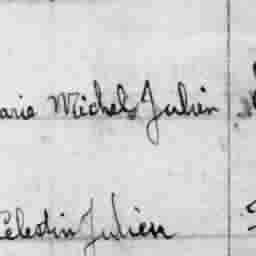 arie Michel Julien
Celestin Julien